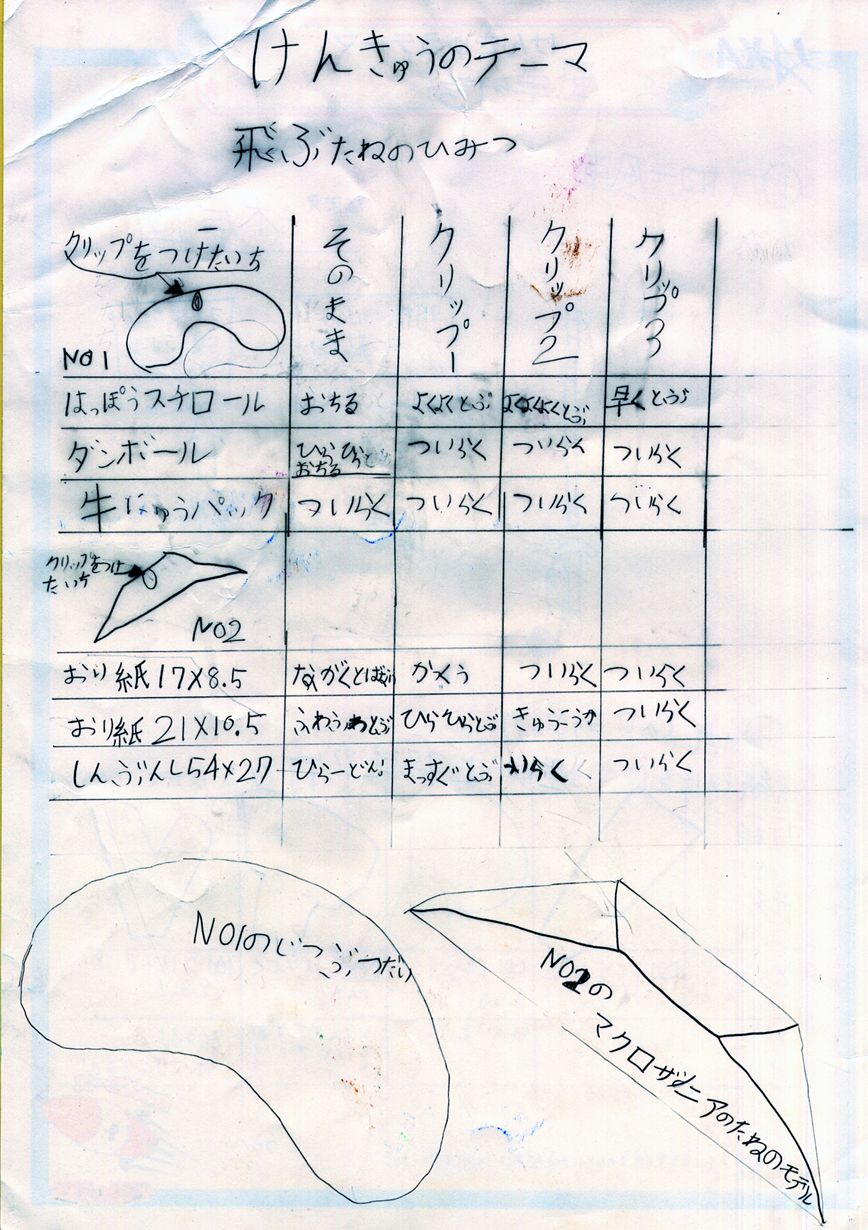 けんきゅうのテーマ
飛ぶたねのひみつ
クリップをつけたいち
NO1
そのまま
クリップ1
クリップ2
クリップ3
はっぽうスチロール おちる よくとぶ よくとぶ 早くとぶ
ダンボール ひらひらと おちる ついらく ついらく ついらく
牛にゅうパック ついらく ついらく ついらく ついらく
クリップをつけ
たいち
NO2
おり紙17×8.5 ながくとぶ かっくう ついらく ついらく
おり紙21×10.5 ふわふわとぶ ひらひらとぶ きゅうこうか ついらく
しんぶんし54×27 まっすぐとぶ ついらく
NO1のじつぶつだい
NO2の
マクロザノニアのたねのモデル